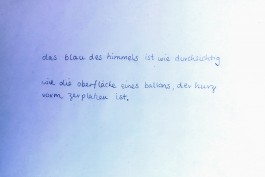 das blau des himmels ist wie durchsichtig
wie die oberfläche eines ballons, der kurz
vorm zerplatzen ist.